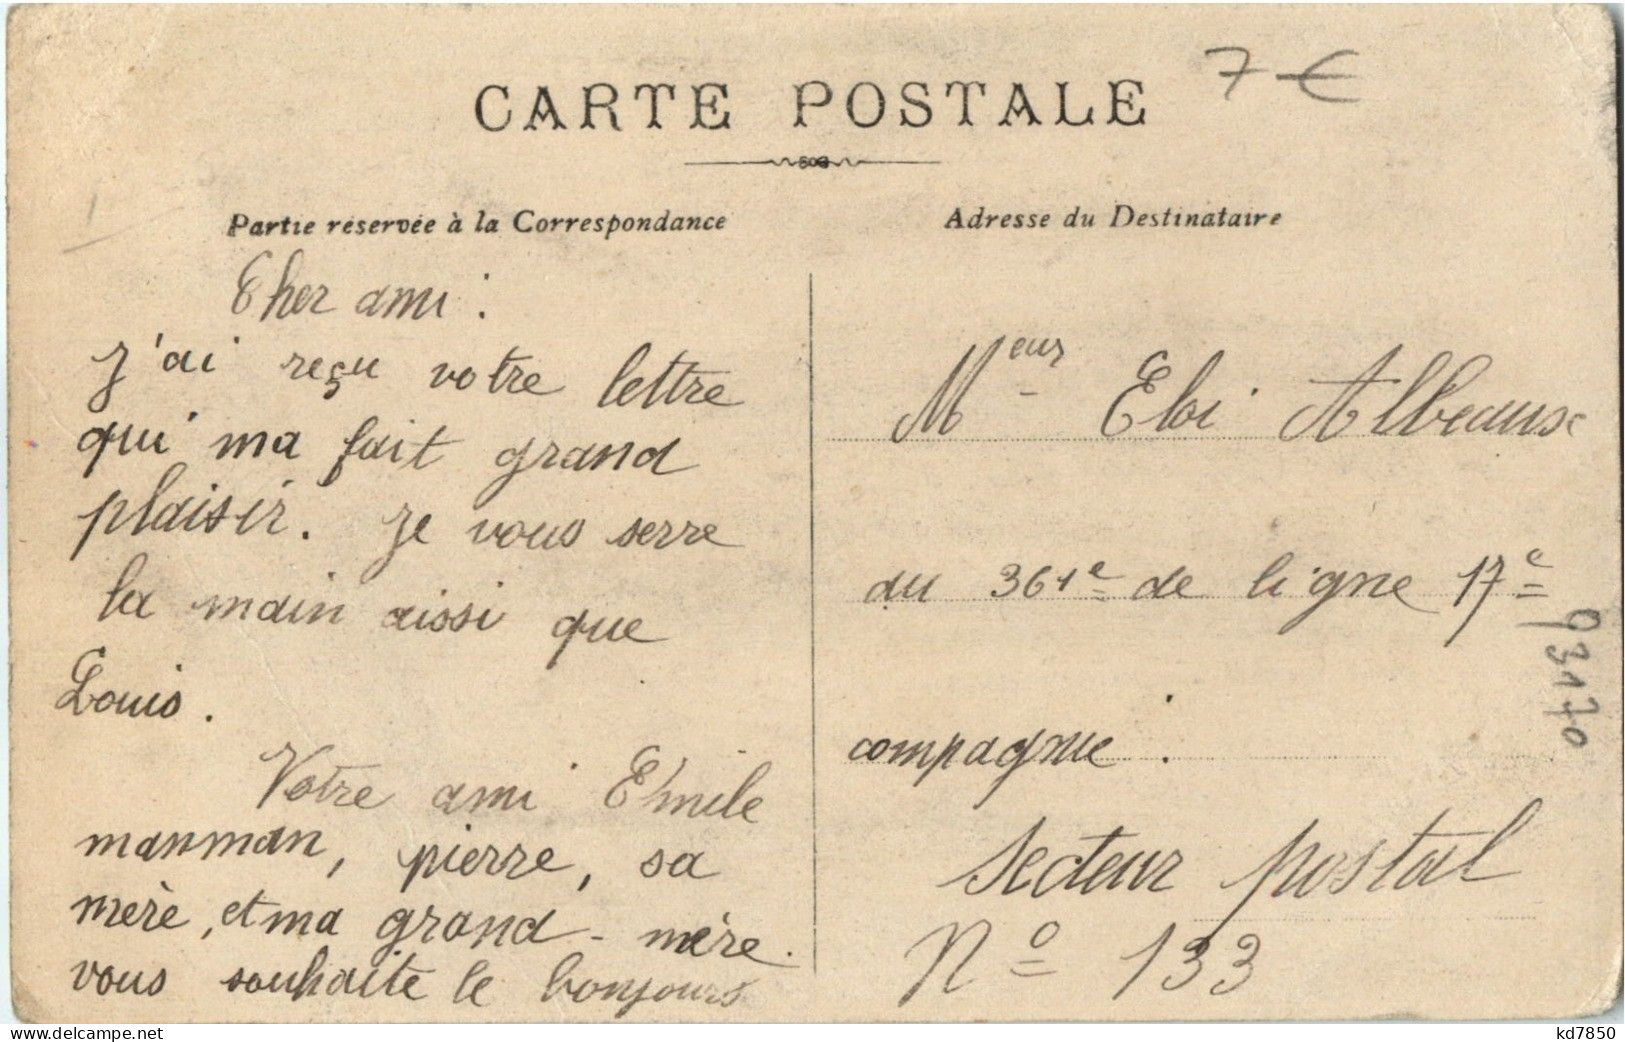 CARTE POSTALE
7 €
Partie réservée à la Correspondance
Cher ami :
J'ai reçu votre lettre
qui ma fait grand
plaisir. Je vous serre
la main aissi que
Louis.
Votre ami Emile
manman, pierre, sa
mère, et ma grand-mère.
vous souhaite le bonjours
Adresse du Destinataire
Meur Eloi Albeaux
du 361e de ligne 17e
compagnie.
Secteur postal
No 133
93170
kd7850